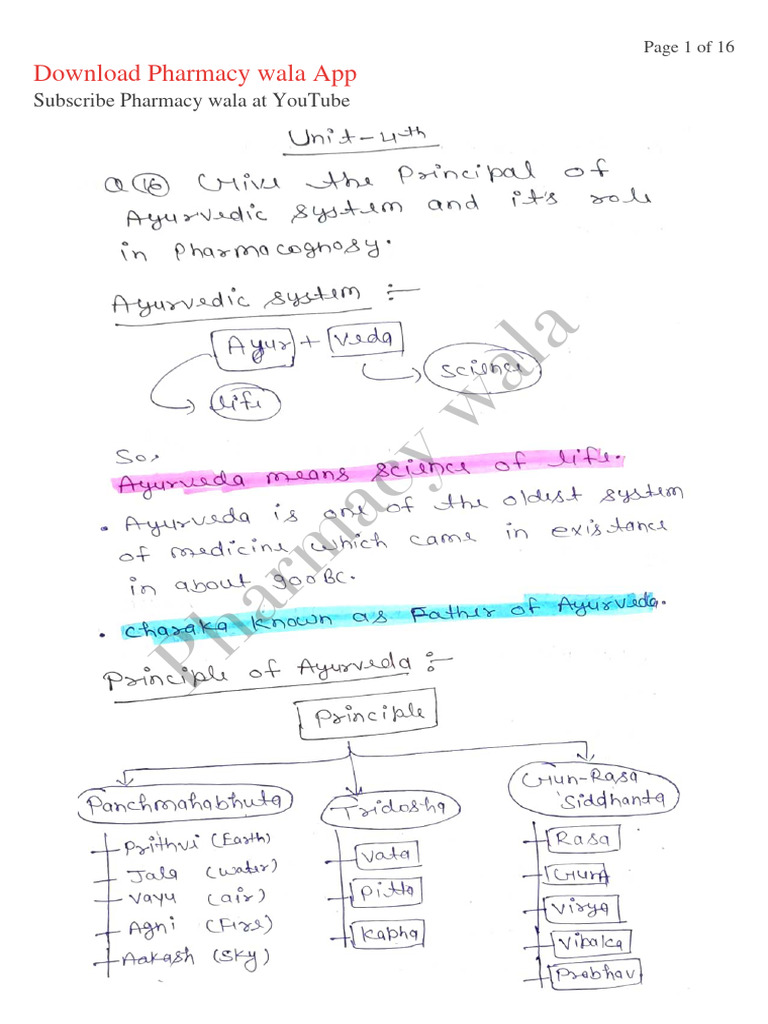 Page 1 of 16
Download Pharmacy wala App
Subscribe Pharmacy wala at YouTube
Unit-4th
Q (16) Give the Principal of
Ayurvedic system and it's role
in Pharmacognosy.
Ayurvedic system :-
Ayur + Veda
science
life
So,
Ayurveda means science of life.
• Ayurveda is one of the oldest system
of medicine which came in existance
in about 900 BC.
• Charaka known as Father of Ayurveda.
Principle of Ayurveda :-
Principle
Panchmahabhuta
Tridosha
Gun-Rasa
Siddhanta
Prithvi (Earth)
Jala (water)
Vayu (air)
Agni (Fire)
Aakash (Sky)
Vata
Pitta
Kapha
Rasa
Guna
Virya
Vipaka
Prabhav
Pharmacy wala